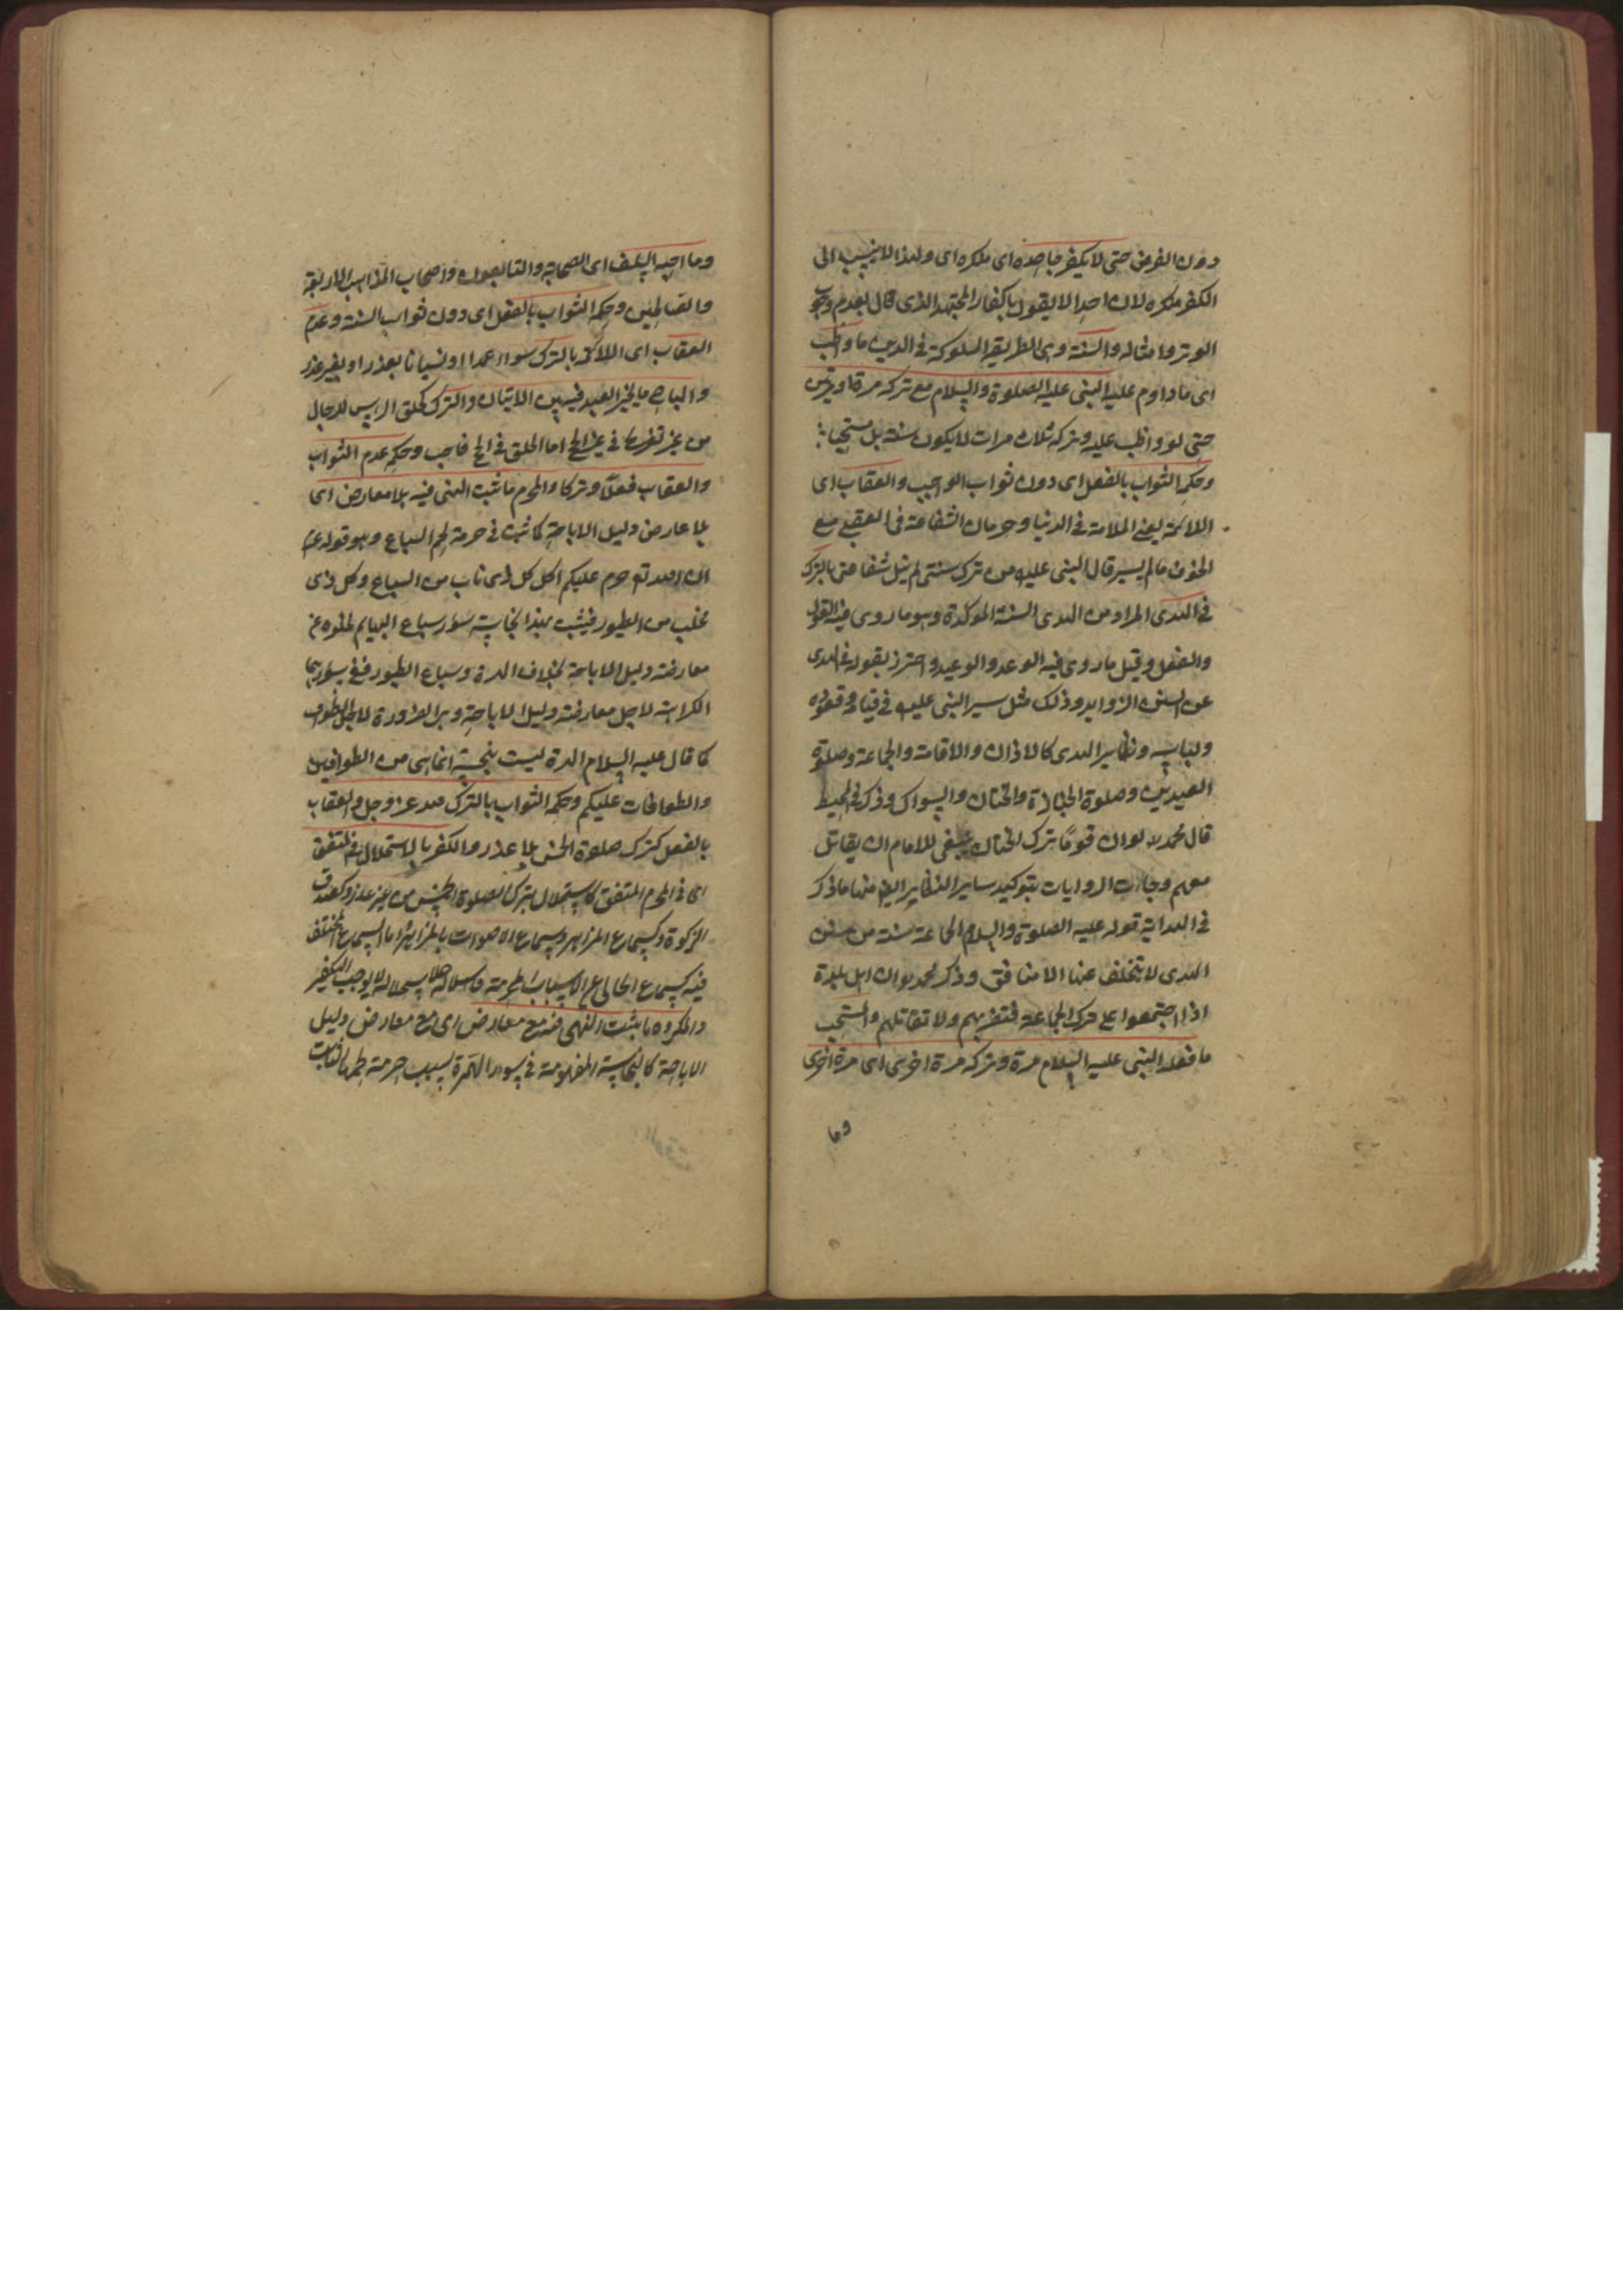 دون الفرض حتى لا يكفر جاحده اى منكره اى ولهذا لا ينسب الى
الكفر منكره لان احدا لا يقول باكفار المجتهد الذى قال بعدم وجوب
الوتر وامثاله والسنة وهى الطريقة المسلوكة فى الدين ما واظب
اى ما داوم عليه النبى عليه الصلوة والسلام مع تركه مرة او مرتين
حتى لو واظب عليه وتركه ثلاث مرات لا يكون سنة بل مستحبا
وحكمه الثواب بالفعل اى دون ثواب الواجب والعقاب اى
اللائمة يعنى الملامة فى الدنيا وحرمان الشفاعة فى العقبى مع
الخوف مالم يسير قال النبى عليه من ترك سنتى لم ينل شفاعتى بالترك
فى الهدى المراد من الهدى السنة المؤكدة وهو ما روى فيه القول
والفعل وقيل ما روى فيه الوعد والوعيد واحترز بقوله فى الهدى
عن السنن الزوايد وذلك مثل سير النبى عليه فى قيامه وقعوده
ولباسه ونظاير الهدى كالاذان والاقامة والجماعة وصلوة
العيدين وصلوة الجنازة والختان والسواك وذكر فى المحيط
قال محمد لو ان قوما ترك الختان ينبغى للامام ان يقاتل
معهم وجاءت الروايات بتوكيد ساير النظاير ايضا منها ما ذكر
فى الهداية قوله عليه الصلوة والسلام الجماعة سنة من سنن
الهدى لا يتخلف عنها الا منافق وذكر محمد لو ان اهل بلدة
اذا اجتمعوا على ترك الجماعة فنضربهم ولا نقاتلهم والمستحب
ما فعله النبى عليه السلام مرة وتركه مرة اخرى اى مرة اخرى
وما
وما احبه السلف اى الصحابة والتابعون واصحاب المذاهب الاربعة
والصالحين وحكمه الثواب بالفعل اى دون ثواب السنة وعدم
العقاب اى اللائمة بالترك سواء عمدا او نسيانا بعذر او بغير عذر
والمباح ما يخير العبد فيه بين الاتيان والترك كحلق الراس للرجال
من غير تفرقة فى غير الحج اما الحلق فى الحج فاجب وحكمه عدم الثواب
والعقاب فعلا وتركا والمحرم ما ثبت النهى فيه بلا معارض اى
بلا عارض دليل الاباحة كما ثبت فى حرمة لحم السباع وهو قوله عم
ان الله تع حرم عليكم اكل كل ذى ناب من السباع وكل ذى
مخلب من الطيور فيثبت بهذا نجاسة سؤر سباع البهايم لخلوه عن
معارضة دليل الاباحة بخلاف الهرة وسباع الطيور ففى سؤرهما
الكراهة لاجل معارضة دليل الاباحة وهى الضرورة لاجل الطواف
كما قال عليه السلام الهرة ليست بنجسة انما هى من الطوافين
والطوافات عليكم وحكمه الثواب بالترك لله عز وجل والعقاب
بالفعل كترك صلوة الخمس بلا عذر والكفر بالاستحلال فى المتفق
اى فى المحرم المتفق كاستحلال بترك الصلوة الخمس من غير عذر وكمنع
الزكوة وكسماع المزامير وسماع الاصوات بالمزامير اما السماع المختلف
فيه كسماع الخالى عن الاسباب المحرمة فاستحلاله لا يوجب التكفير
والمكروه ما يثبت النهى فيه مع معارض اى مع معارض دليل
الاباحة كالنجاسة المفهومة فى سؤر الهرة بسبب حرمة لحمها